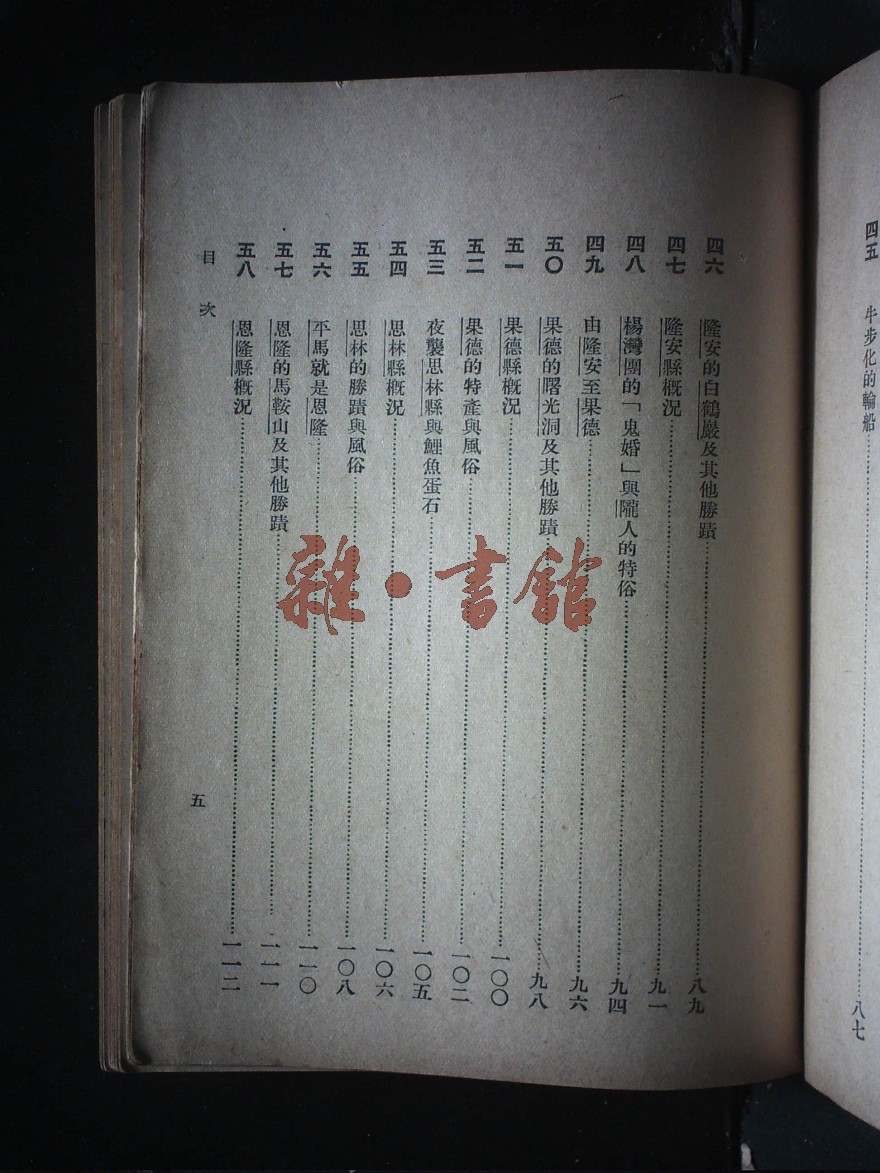 四五 牛步化的輪船……八七
四六 隆安的白鶴巖及其他勝蹟……八九
四七 隆安縣概況……九一
四八 楊灣團的「鬼婚」與隴人的特俗……九四
四九 由隆安至果德……九六
五〇 果德的曙光洞及其他勝蹟……九八
五一 果德縣概況……一〇〇
五二 果德的特產與風俗……一〇二
五三 夜襲思林縣與鯉魚蛋石……一〇五
五四 思林縣概況……一〇六
五五 思林的勝蹟與風俗……一〇八
五六 平馬就是恩隆……一一〇
五七 恩隆的馬鞍山及其他勝蹟……一一一
五八 恩隆縣概況……一一二
目次 五
雜·書館